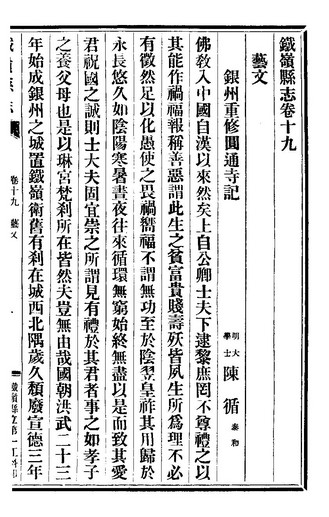 鐵嶺縣志卷十九
藝文
銀州重修圓通寺記
明大學士 陳循 泰和
佛教入中國自漢以來然矣上自公卿士夫下逮黎庶罔不尊禮之以
其能作禍福報稱善惡謂此生之貧富貴賤壽殀皆夙生所爲理不必
有徵然足以化愚使之畏禍嚮福不謂無功至於陰翌皇祚其用歸於
永長悠久如陰陽寒暑晝夜往來循環無窮始終無盡以是而致其愛
君祝國之誠則士大夫固宜崇之所謂見有禮於其君者事之如孝子
之養父母也是以琳宮梵刹所在皆然夫豈無由哉國朝洪武二十三
年始成銀州之城置鐵嶺衛舊有刹在城西北隅歲久頹廢宣德三年
卷十九 藝文
一